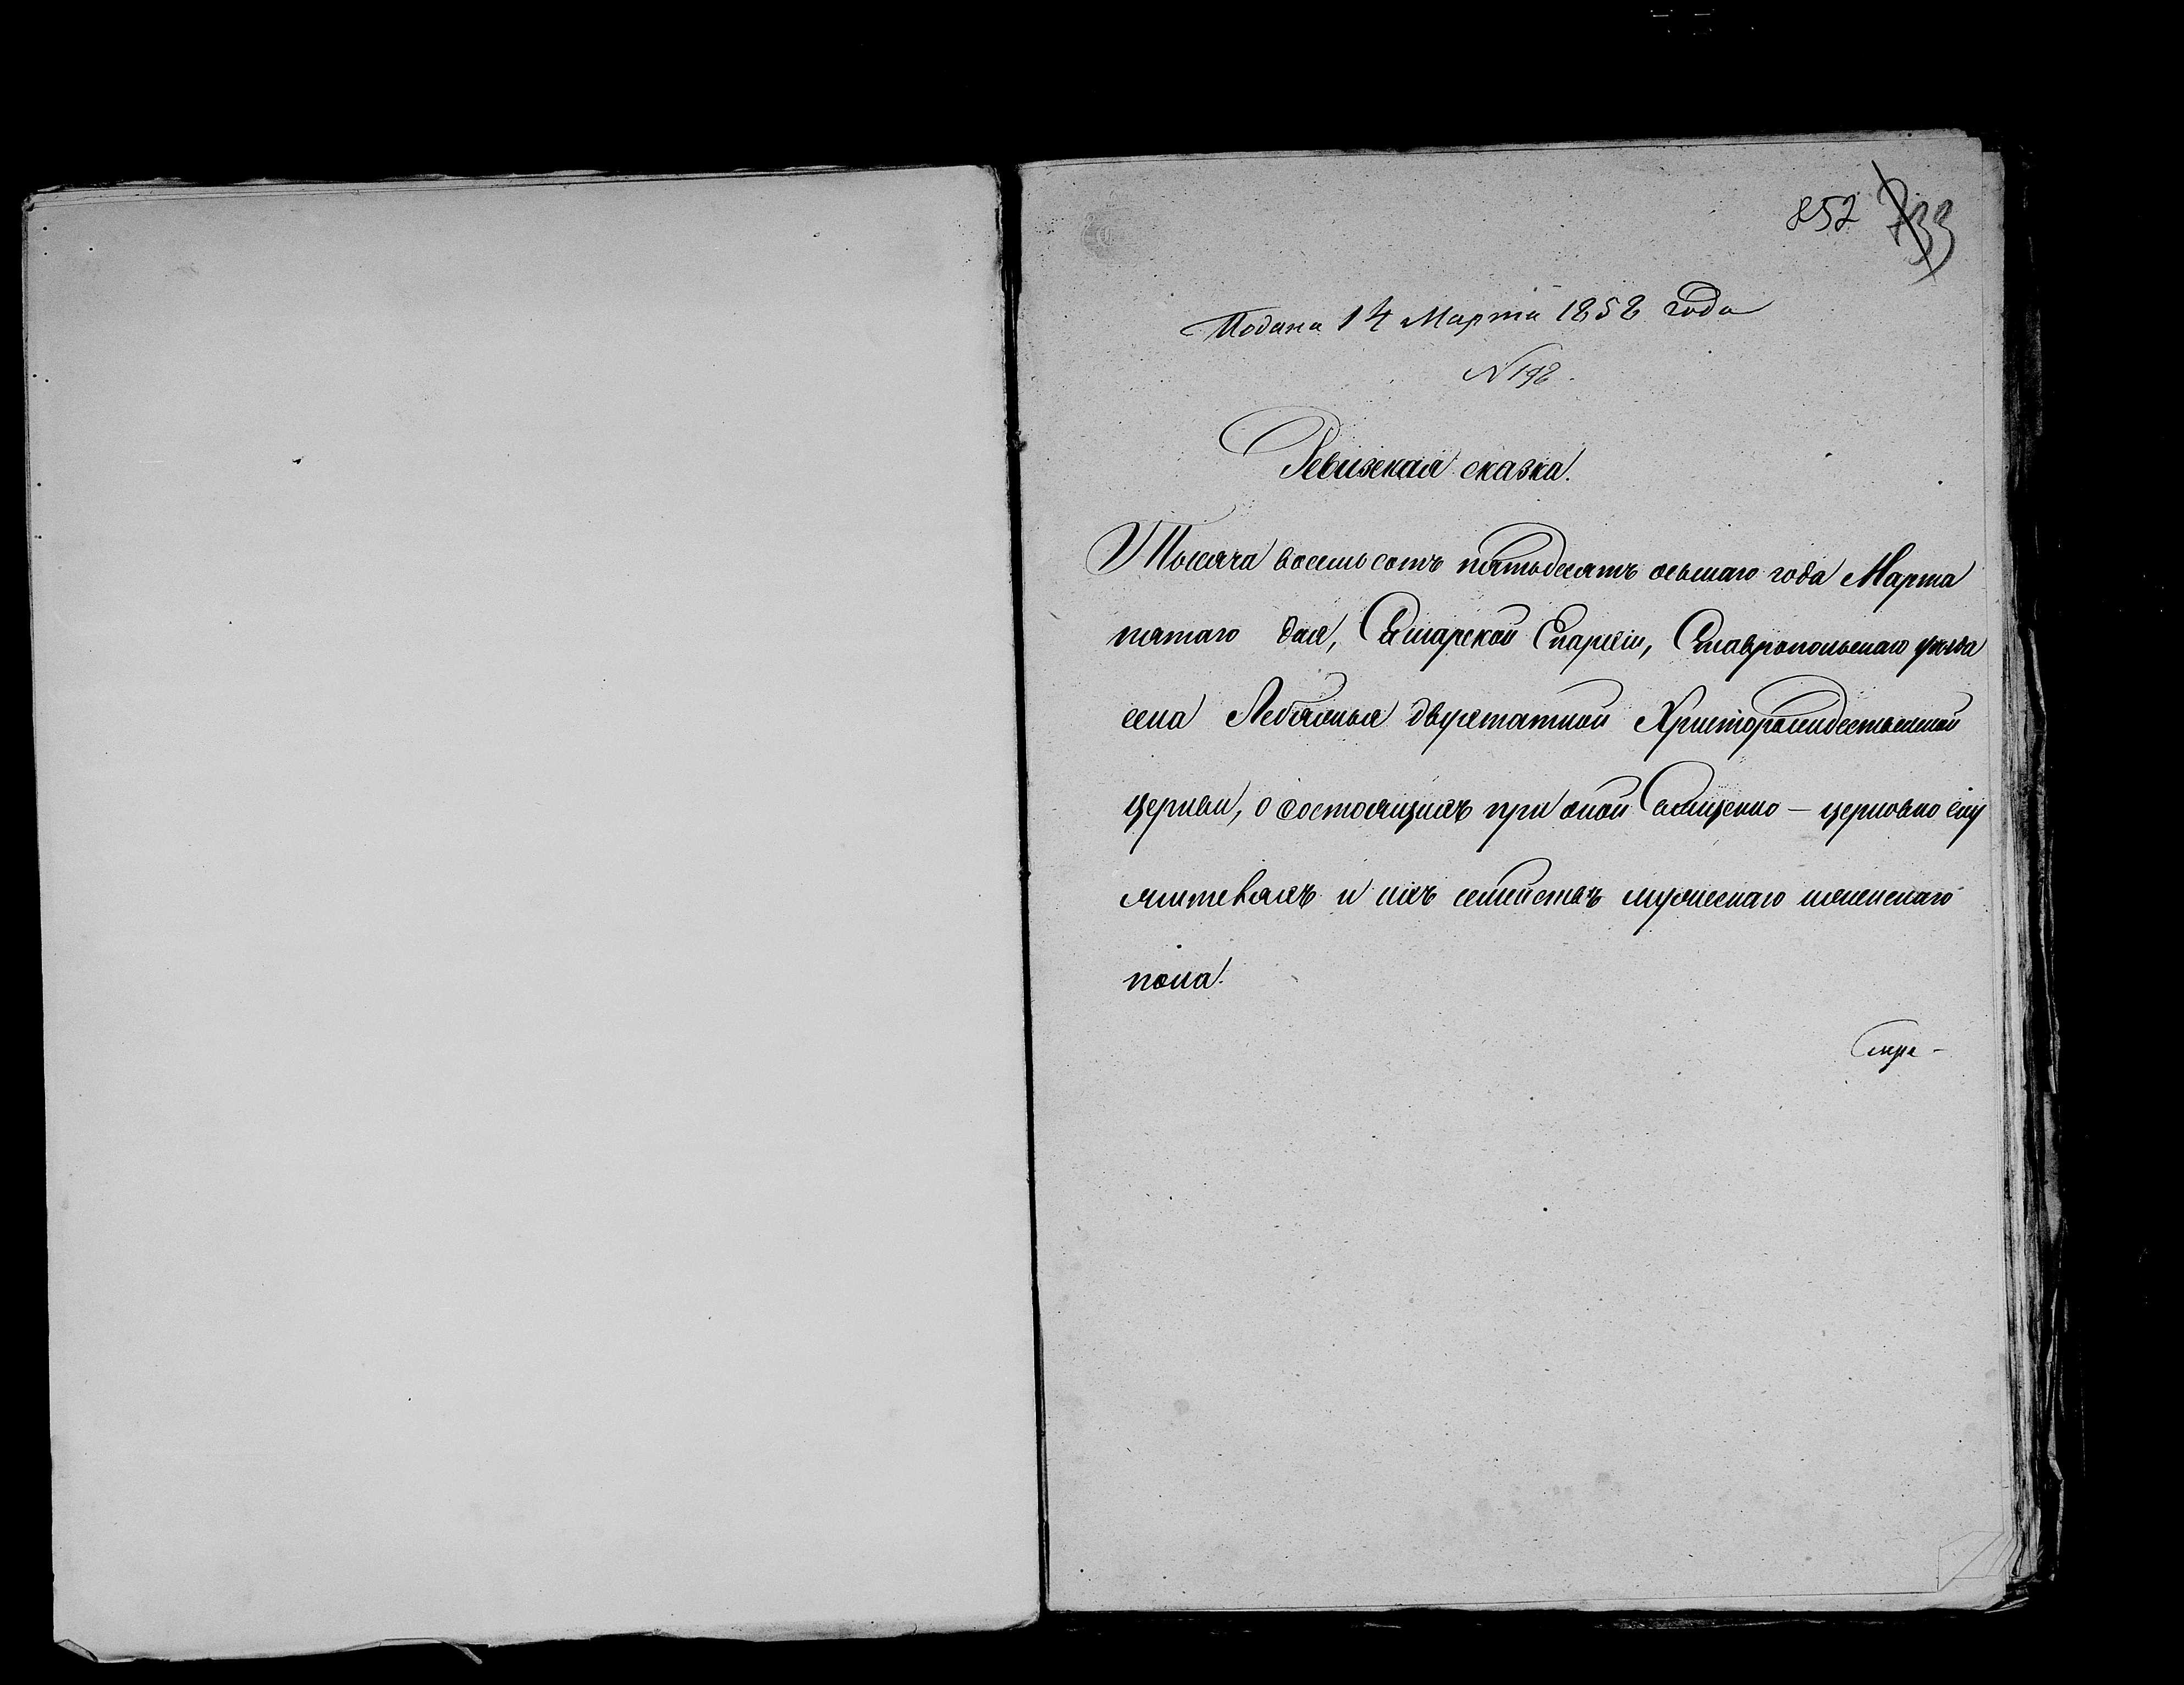 852 733
Подана 14 Марта 1858 года
N 198.
Ревизская сказка.
Тысяча восемьсотъ пятьдесятъ осьмаго года Марта
пятаго дня, Самарской Епархіи, Ставропольскаго уѣзда
села Лебяжья двуштатной Христорождественской
церкви, о состоящихъ при оной Священно-церковно слу
жителяхъ и ихъ семействѣ мужескаго и женскаго
пола.